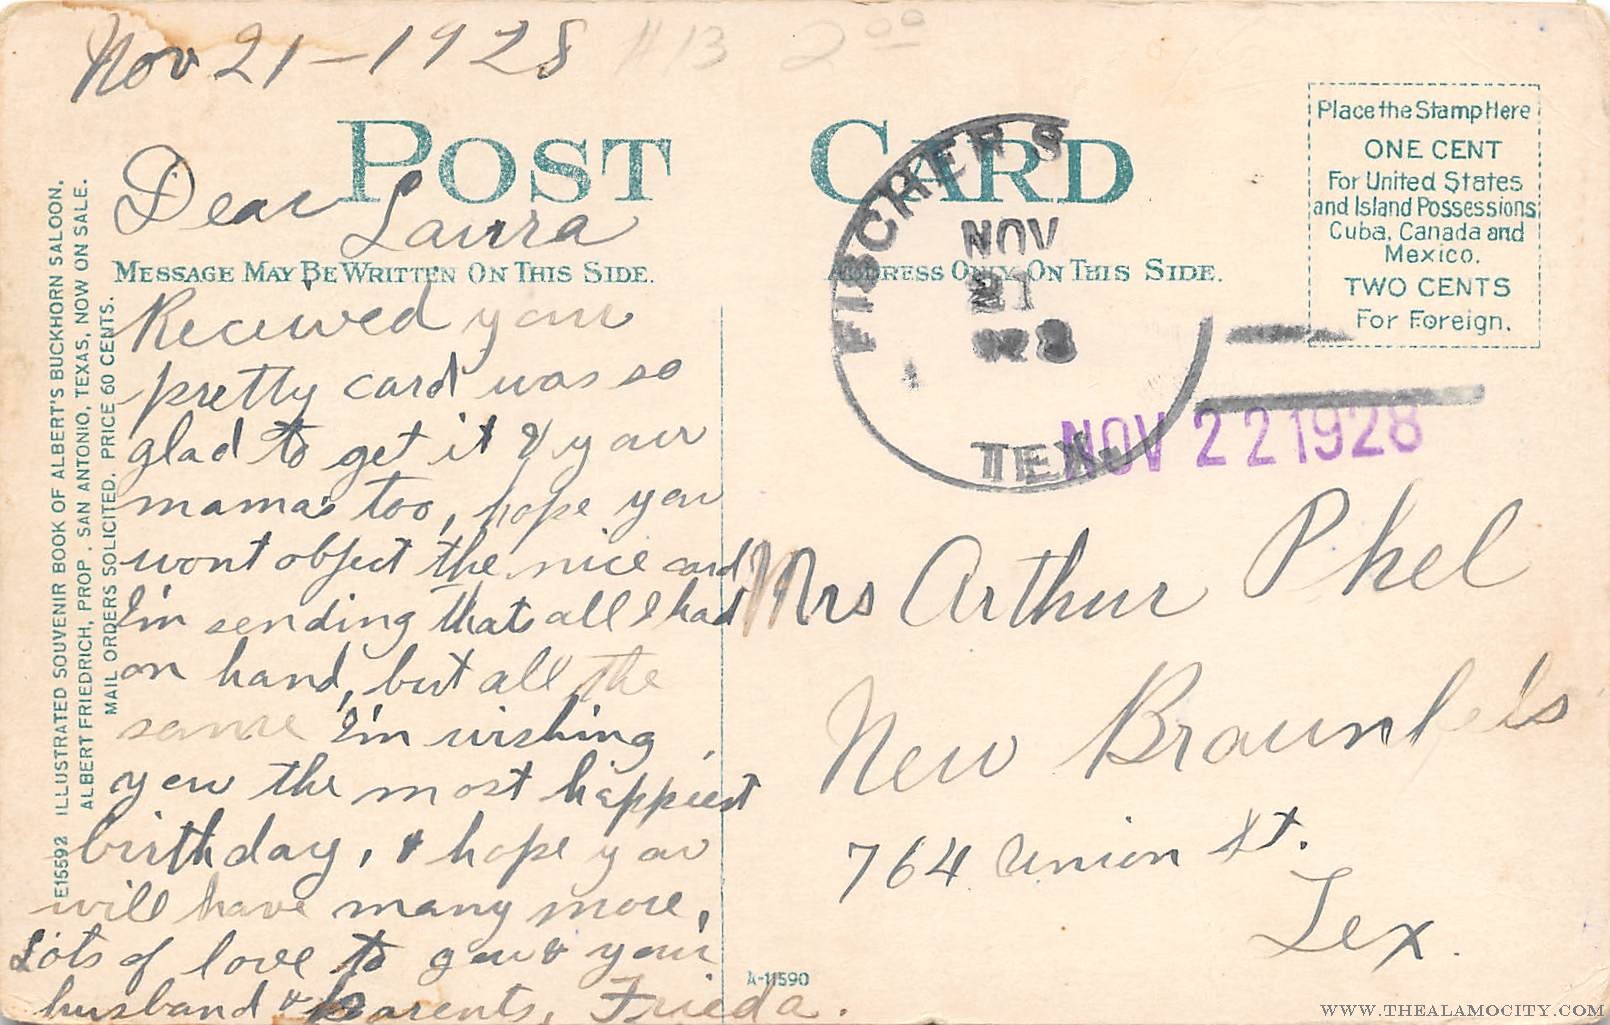 Nov 21-1928 #13 2.00
POST CARD
Dear Laura
MESSAGE MAY BE WRITTEN ON THIS SIDE.
Received your
pretty card was so
glad to get it & your
mamas too, hope you
wont object the nice card
I'm sending thats all I had
on hand, but all the
same I'm wishing
you the most happiest
birthday, & hope you
will have many more,
Lots of love to you & your
husband & parents, Frieda.
E15592 ILLUSTRATED SOUVENIR BOOK OF ALBERT'S BUCKHORN SALOON,
ALBERT FRIEDRICH, PROP. SAN ANTONIO, TEXAS, NOW ON SALE.
MAIL ORDERS SOLICITED. PRICE 60 CENTS.
ADDRESS ONLY ON THIS SIDE.
FISCHERS
NOV
21
TEX.
NOV 22 1928
Place the Stamp Here
ONE CENT
For United States
and Island Possessions
Cuba, Canada and
Mexico.
TWO CENTS
For Foreign.
Mrs Arthur Phel
New Braunfels
764 Union St.
Tex.
A-11590
WWW.THEALAMOCITY.COM